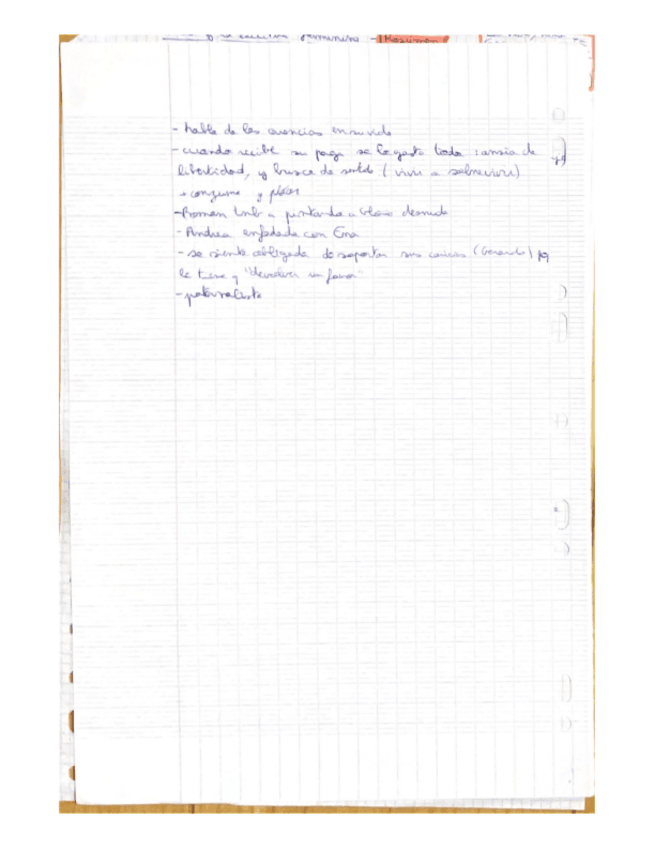 femenina - Resumen
- habla de las ausencias en su vida
- cuando recibe su paga se lo gasta todo : ansia de
libertidad, y busca de sentido ( vivir a sobrevivir)
→ consume y placer
- Roman pintando a desnuda
- Andrea enfadada con Ena
- se siente obligada de soportar sus caricias (Gerardo) pq
le tiene q "devolver un favor"
- paternalista